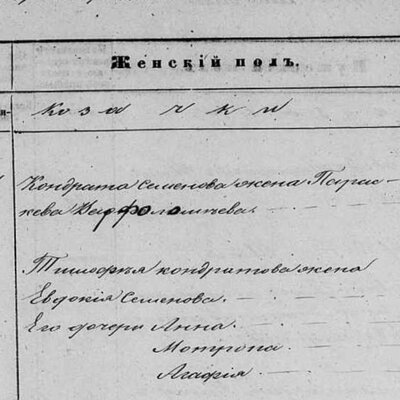 Женскій полъ.
Козачки
Кондрата Семенова жена Парас-
кева Варфоломѣева.
Тимофѣя Кондратова жена
Евдокія Семенова.
Его дочери Анна.
Мотрона.
Агафія.